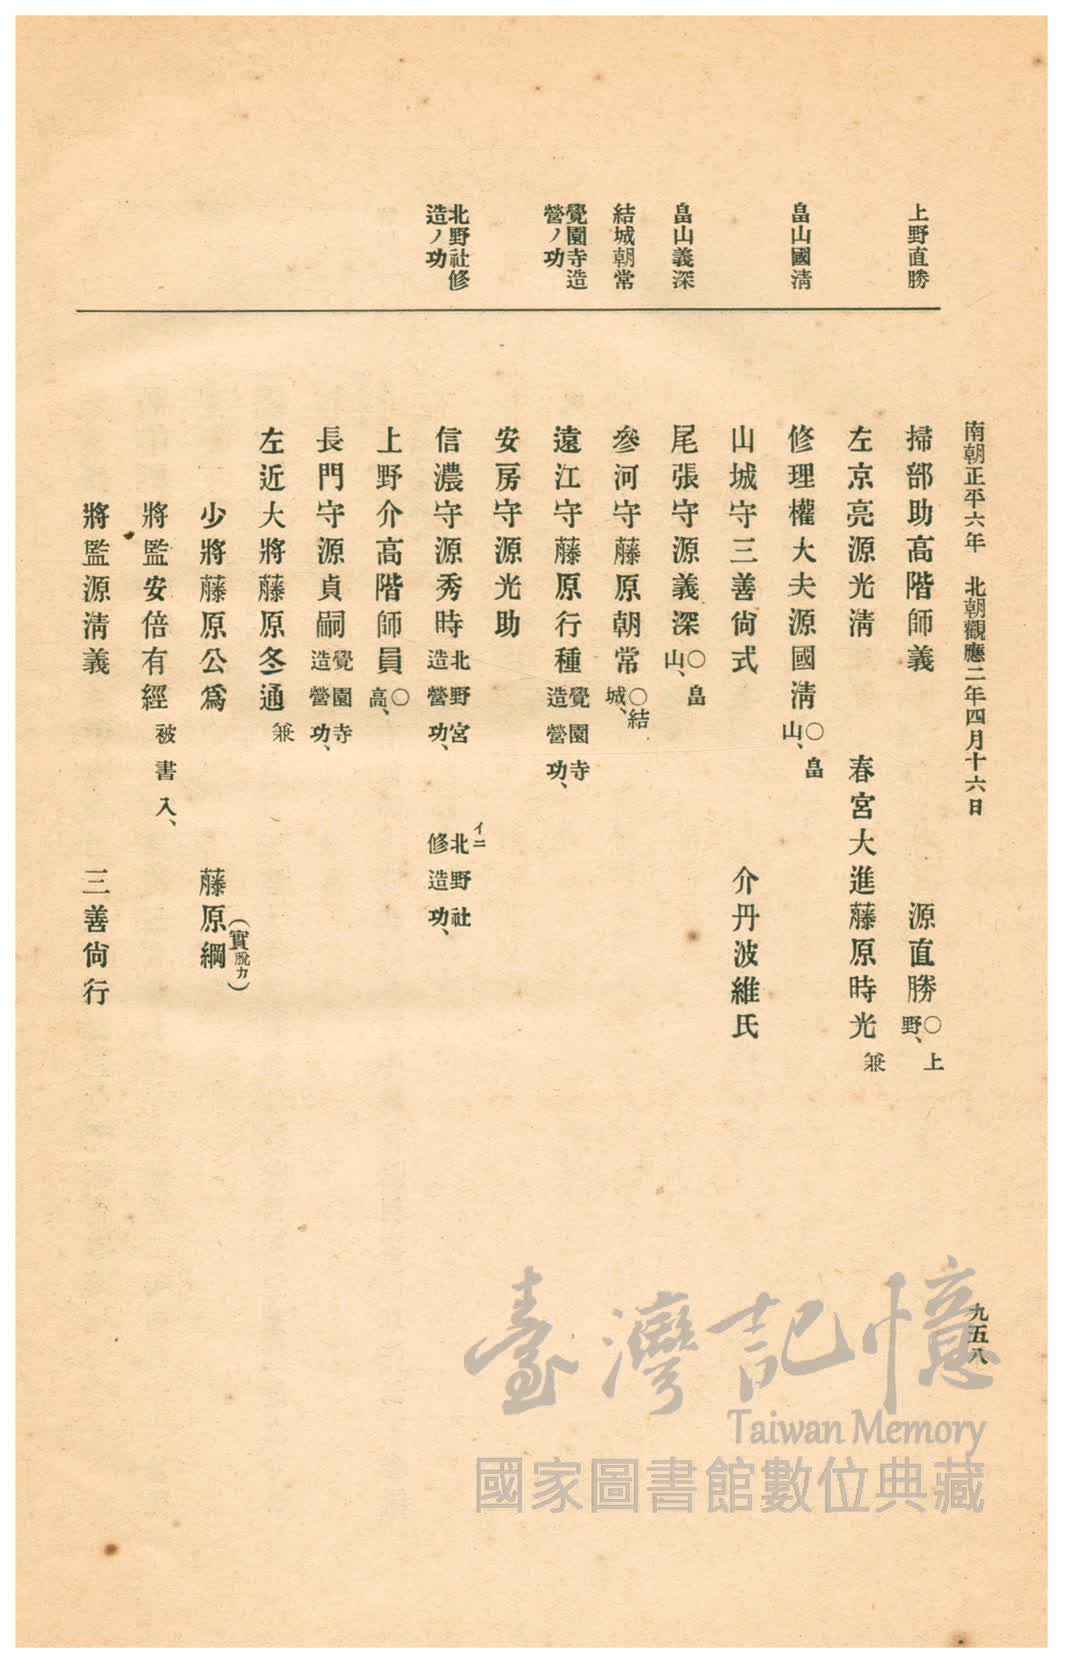 南朝正平六年　北朝觀應二年四月十六日
九五八
上野直勝
畠山國清
畠山義深
結城朝常
覺園寺造
營ノ功
北野社修
造ノ功
掃部助高階師義　源直勝〇上野、
左京亮源光清　春宮大進藤原時光兼
修理權大夫源國清〇畠山、
山城守三善尙式　介丹波維氏
尾張守源義深〇畠山、
參河守藤原朝常〇結城、
遠江守藤原行種覺園寺造營功、
安房守源光助
信濃守源秀時北野宮造營功、　イニ北野社修造功、
上野介高階師員〇高、
長門守源貞嗣覺園寺造營功、
左近大將藤原冬通兼
少將藤原公爲　藤原綱（實脫カ）
將監安倍有經被書入、
將監源淸義　三善尙行
臺灣記憶
Taiwan Memory
國家圖書館數位典藏